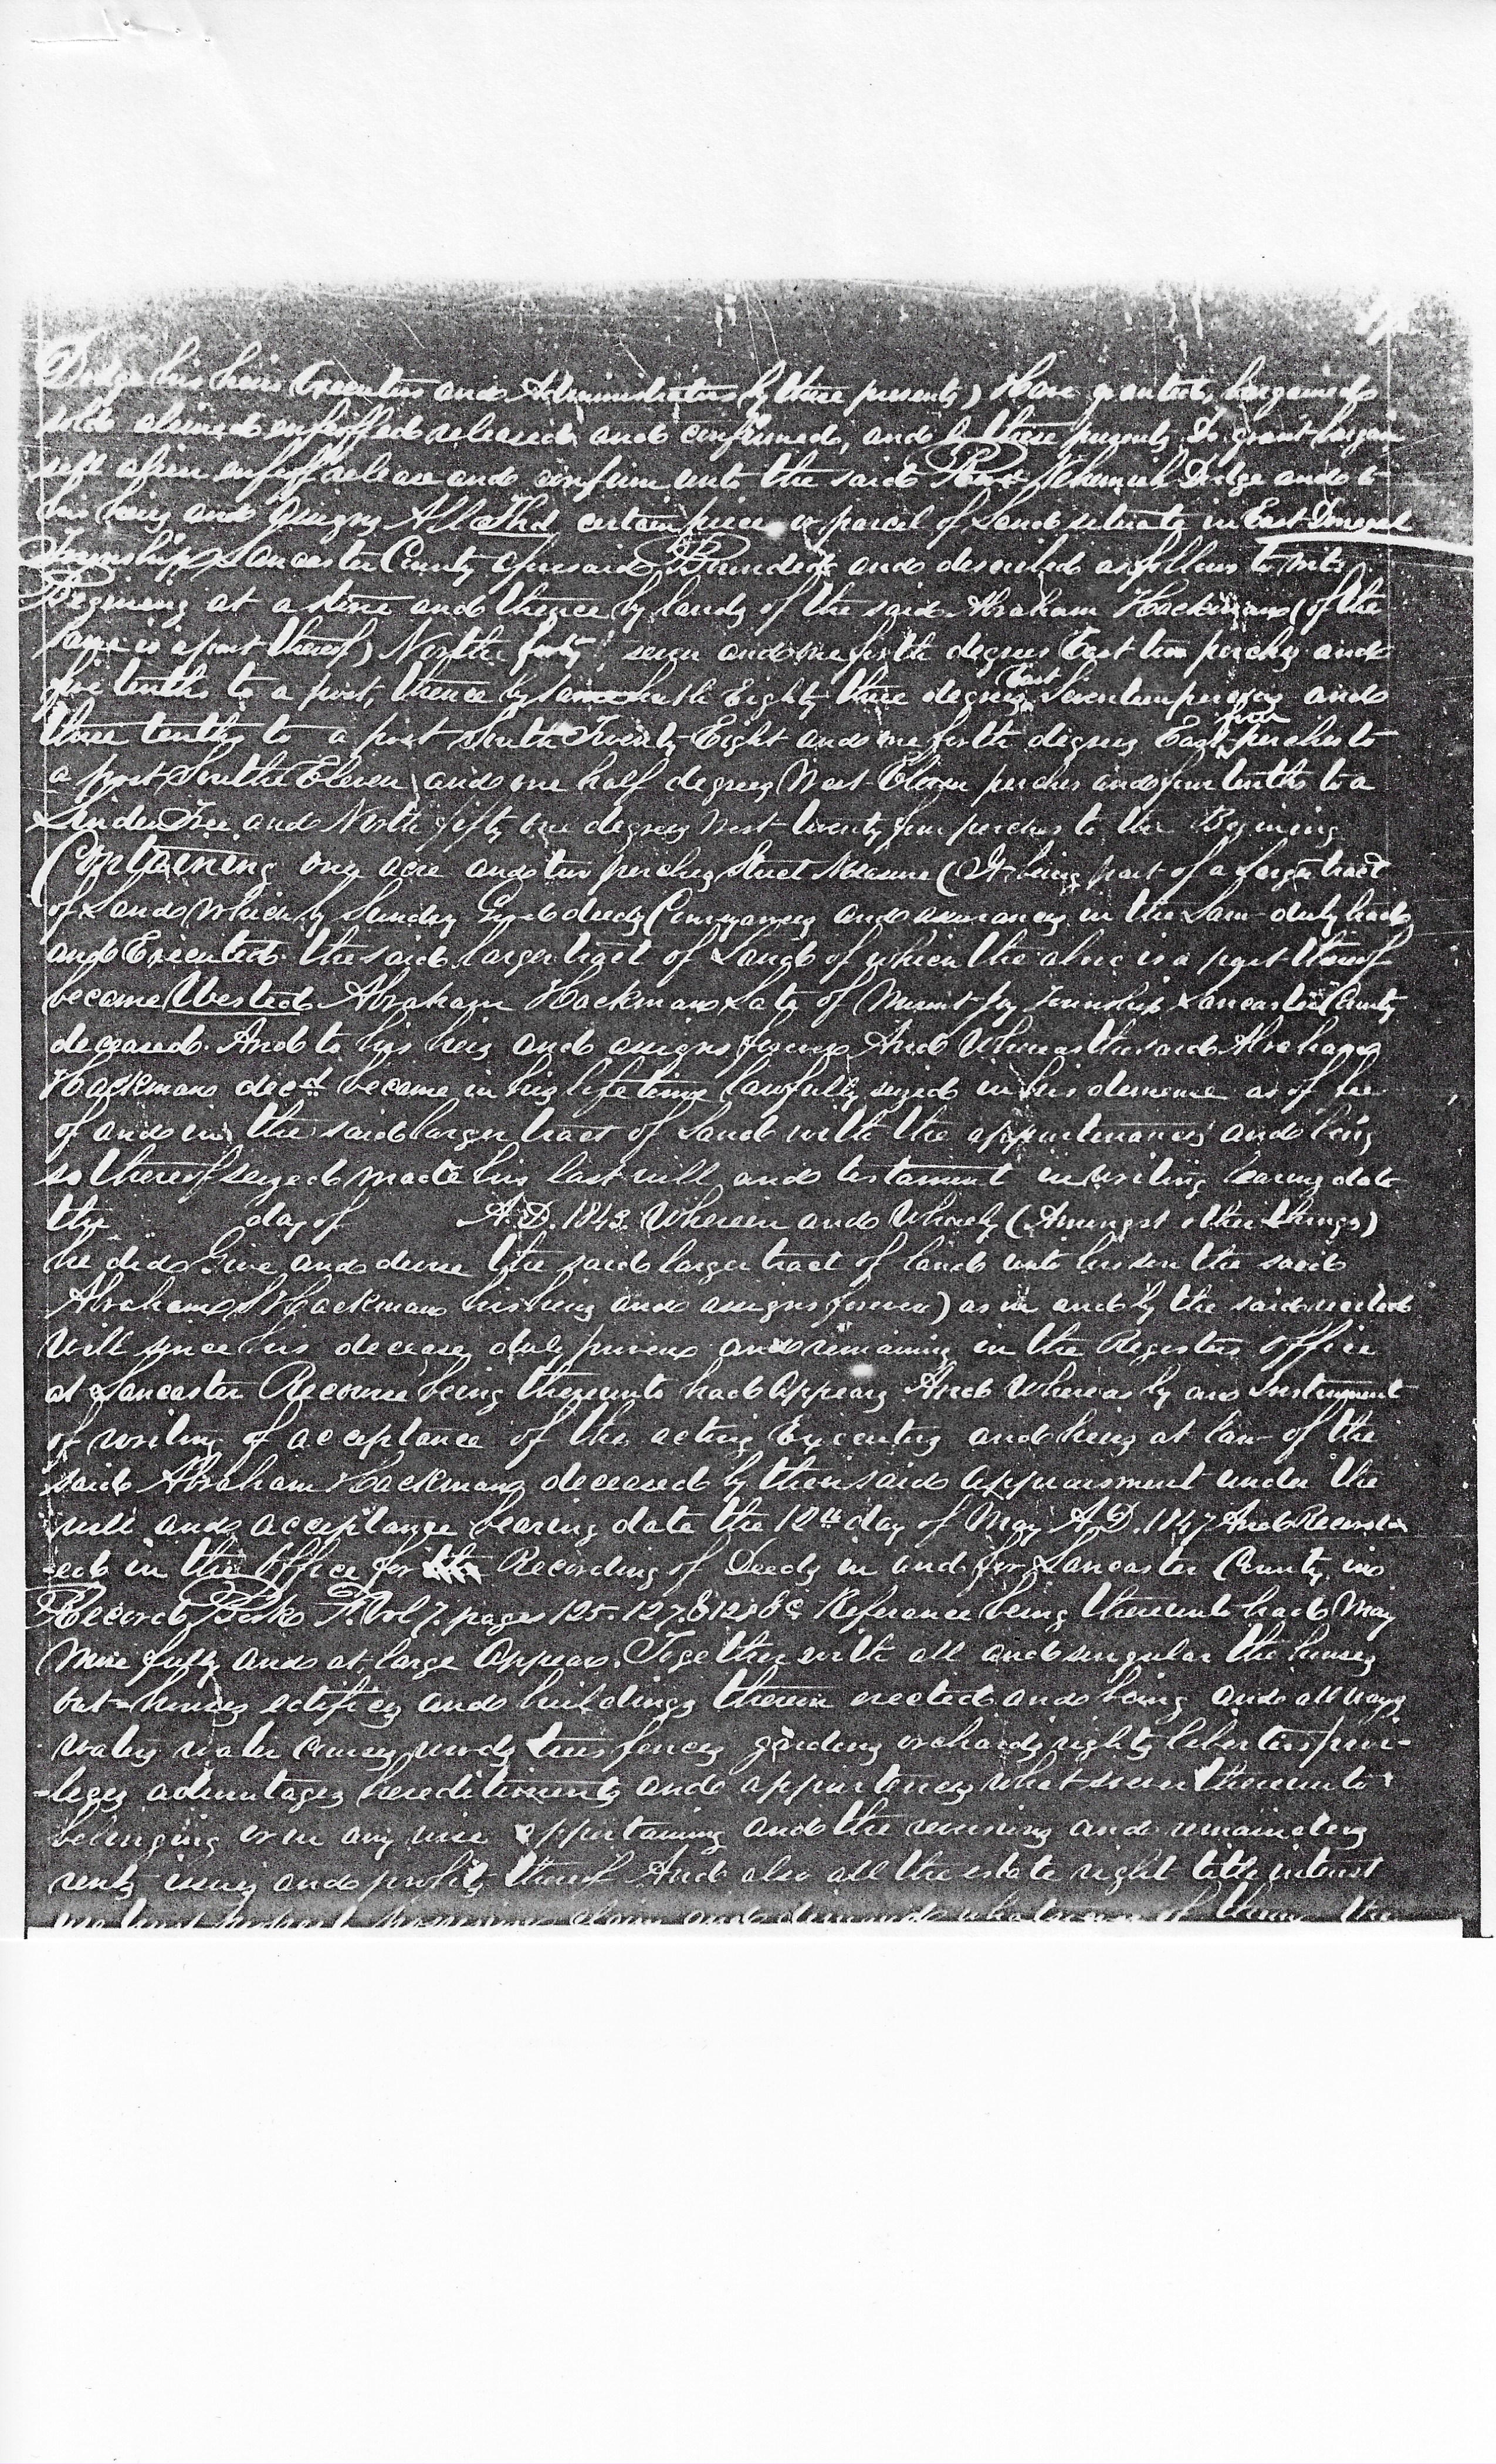 Dodge his heirs Executors and Administrators by these presents) Have granted, bargained
sold aliened enfeoffed released and confirmed, and by these presents Do grant bargain
sell alien enfeoff release and confirm unto the said Nehemiah Dodge and to
his heirs and assigns All That certain piece or parcel of Land situate in East Donegal
Township Lancaster County aforesaid Bounded and described as follows to wit.
Begining at a stone and thence by lands of the said Abraham Hackman (of the
same is a part thereof) North forty seven and one forth degrees East ten perches and
five tenths to a post, thence by same South Eighty three degrees East Seventeen perches and
three tenths to a post South Twenty Eight and one forth degrees East four perches to
a post South Eleven and one half degrees West Eleven perches and four tenths to a
Linden Tree and North fifty one degrees West twenty four perches to the Begining
Containing one acre and two perches Strict Measure (It being part of a Larger tract
of Land which by Sundry Good deeds Conveyances and assurances in the Law duly had
and Executed the said larger tract of Land of which the above is a part thereof
became Vested Abraham Hackman Late of Mount Joy Township Lancaster County
deceased. And to his heirs and assigns forever And Whereas the said Abraham
Hackman decd became in his lifetime lawfully seized in his demesne as of fee
of and in the said larger tract of Land with the appurtenances and being
so thereof seized made his last will and testament in writing bearing date
the day of A.D. 1843. Wherein and Whereby (Amongst other things)
he did Give and devise the said larger tract of land unto his son the said
Abraham S Hackman his heirs and assigns forever) as in and by the said recited
will since his decease duly proven and remaining in the Registers office
at Lancaster Recourse being thereunto had Appears And Whereas by an Instrument
of writing of acceptance of the acting Executors and heirs at law of the
said Abraham Hackman deceased by their said appraisment under the
will and acceptance bearing date the 12th day of May A.D. 1847 And Record-
-ed in the Office for Recording of Deeds in and for Lancaster County in
Record Book F. Vol 7. pages 125. 127. & 128 &c Referance being thereunto had May
More fully and at large Appear. Together with all and singular the houses
out=houses edifices and buildings therein erected and being and all ways
waters water courses woods trees fences gardens orchards rights liberties privi-
-leges advantages hereditiments and appurtences what soever thereunto
belonging or in any wise appurtaining and the reversions and remainders
rents issues and profits thereof And also all the estate right title interest
claim and demand whatsoever of them the